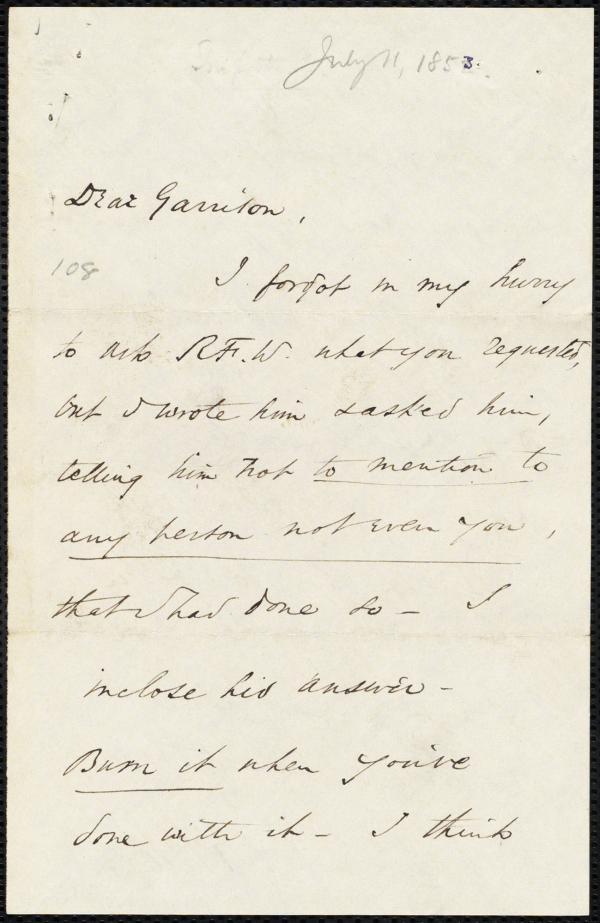 July 11, 1853.
Dear Garrison,
108
I forgot in my hurry
to ask R.F.W. what you requested,
but I wrote him & asked him,
telling him not to mention to
any person not even you,
that I had done so – I
inclose his answer –
Burn it when you've
done with it – I think